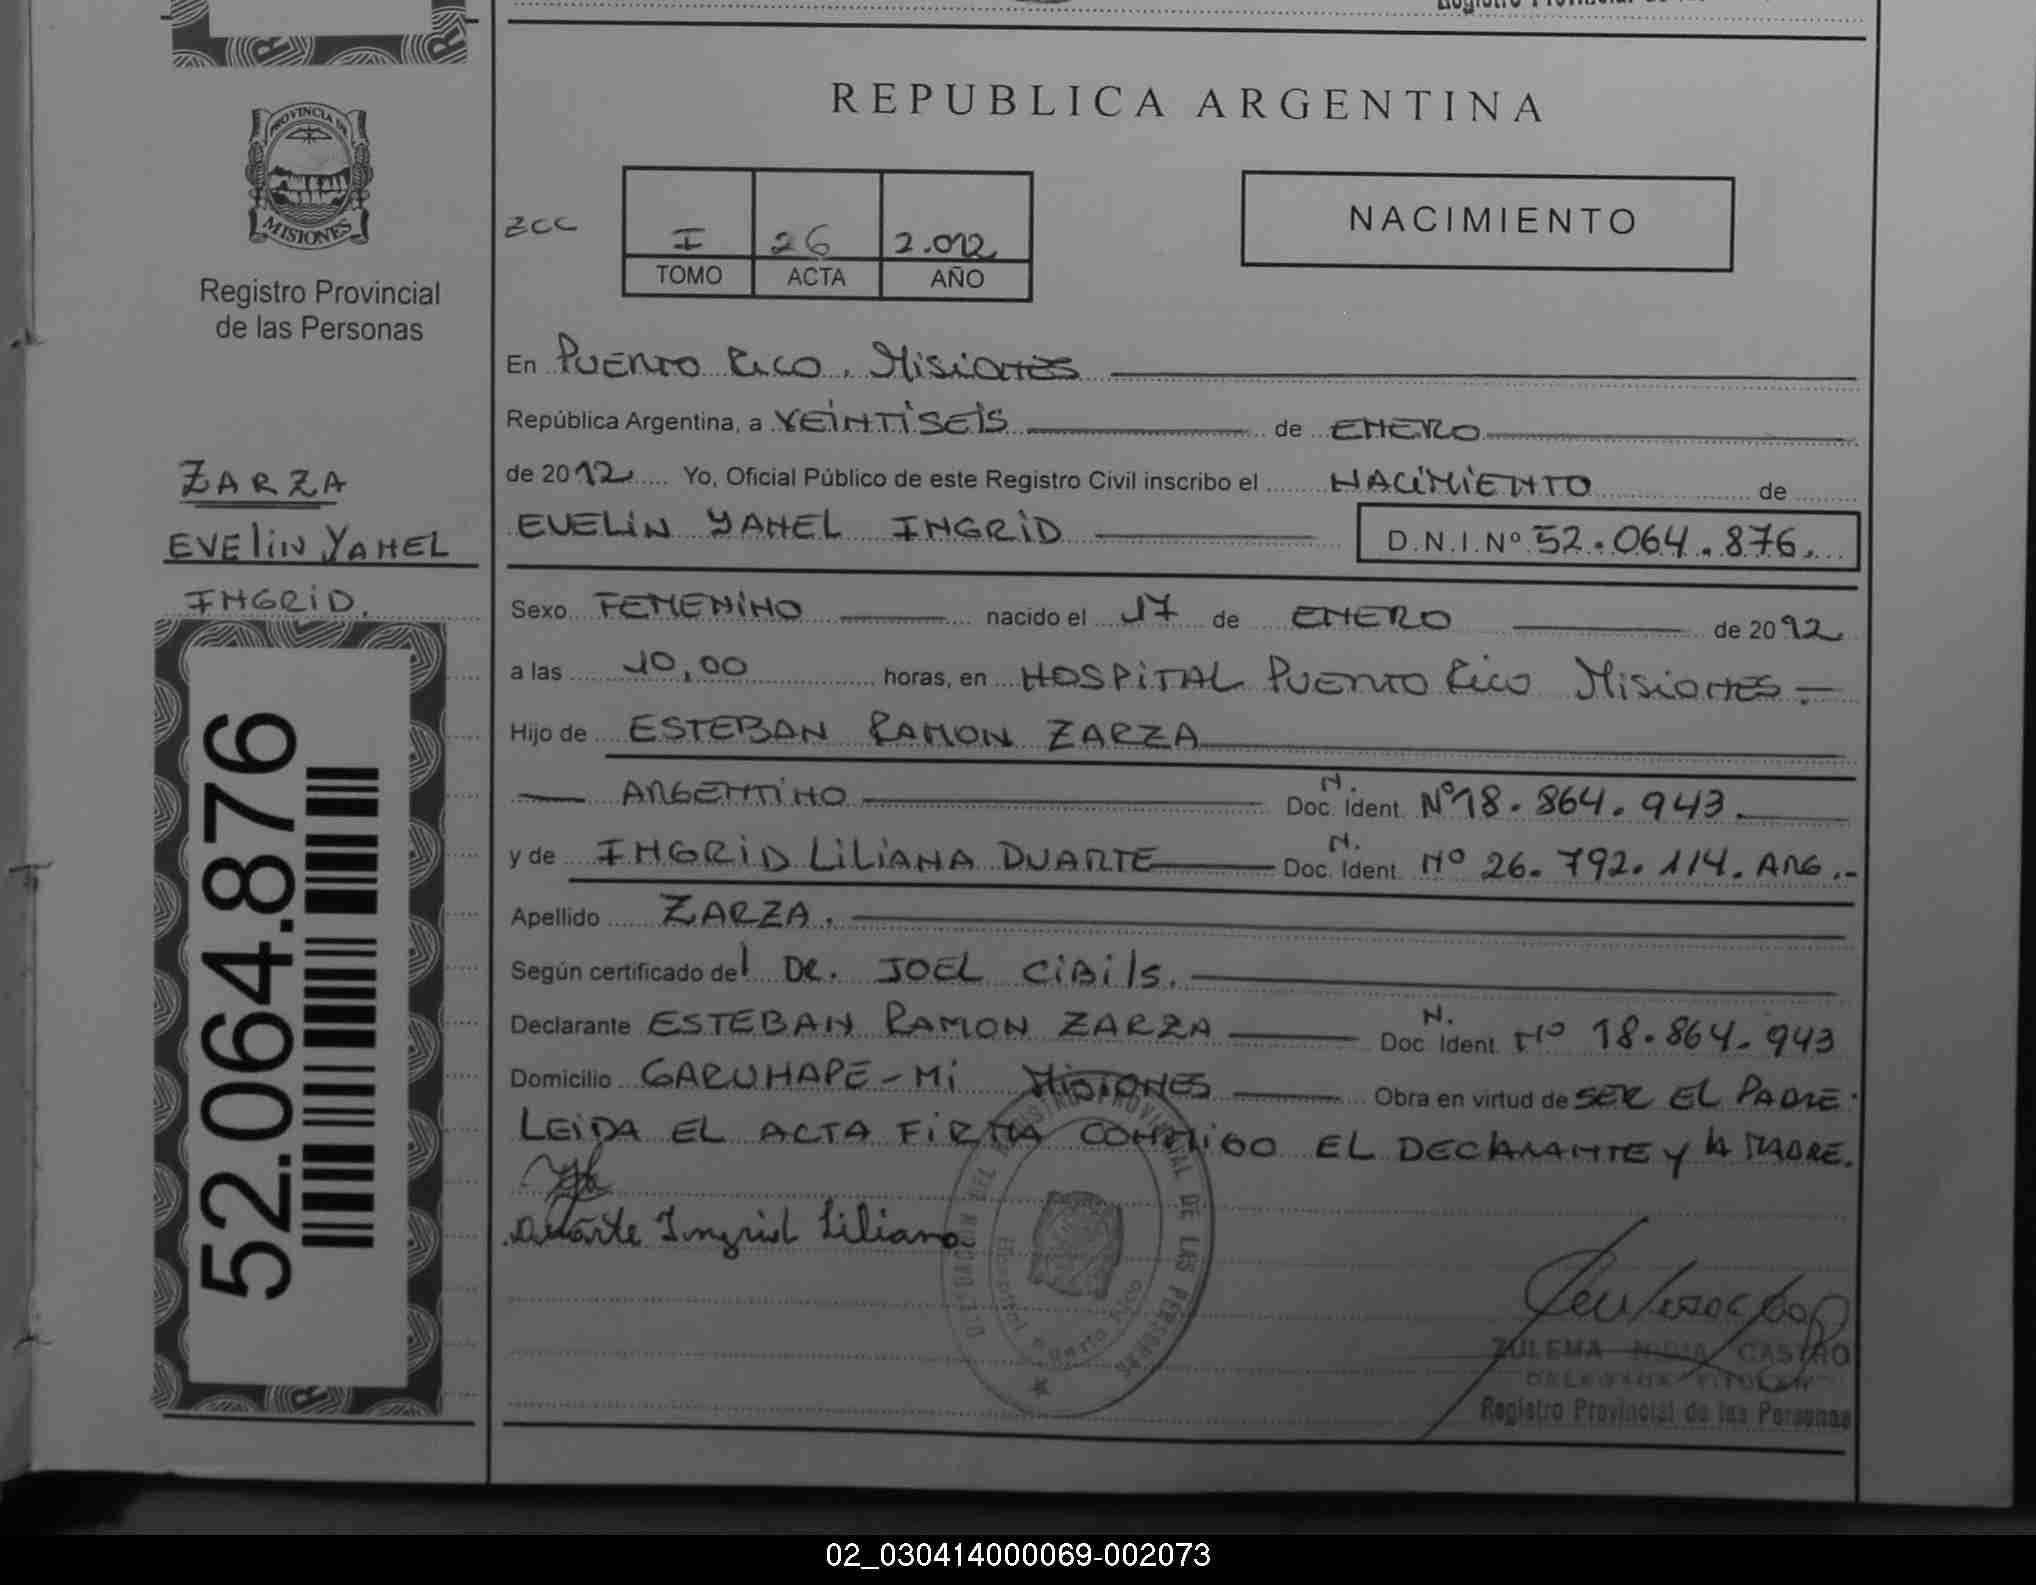 REPUBLICA ARGENTINA
PROVINCIA DE
MISIONES
Registro Provincial
de las Personas
ZCC
I 26 2.012
TOMO ACTA AÑO
NACIMIENTO
En PUERTO RICO, MISIONES
República Argentina, a VEINTISEIS de ENERO
de 2012 Yo, Oficial Público de este Registro Civil inscribo el NACIMIENTO de
EVELIN YAHEL INGRID D.N.I.Nº 52.064.876.
ZARZA
EVELIN YAHEL
INGRID.
52.064.876
Sexo FEMENINO nacido el 17 de ENERO de 2012
a las 10,00 horas, en HOSPITAL PUERTO RICO MISIONES -
Hijo de ESTEBAN RAMON ZARZA
ARGENTINO N. Doc. Ident. Nº 18.864.943
y de INGRID LILIANA DUARTE N. Doc. Ident. Nº 26.792.114. ARG.-
Apellido ZARZA.
Según certificado del DR. JOEL CIBILS.
Declarante ESTEBAN RAMON ZARZA N. Doc. Ident. Nº 18.864.943
Domicilio GARUHAPE-MI MISIONES Obra en virtud de SER EL PADRE.
LEIDA EL ACTA FIRMA CONMIGO EL DECLARANTE Y LA MADRE.
Duarte Ingrid Liliana
DELEGACION DEL REGISTRO PROVINCIAL DE LAS PERSONAS
Hospital Puerto Rico
ZULEMA NIDIA CASTRO
DELEGADA TITULAR
Registro Provincial de las Personas
02_030414000069-002073